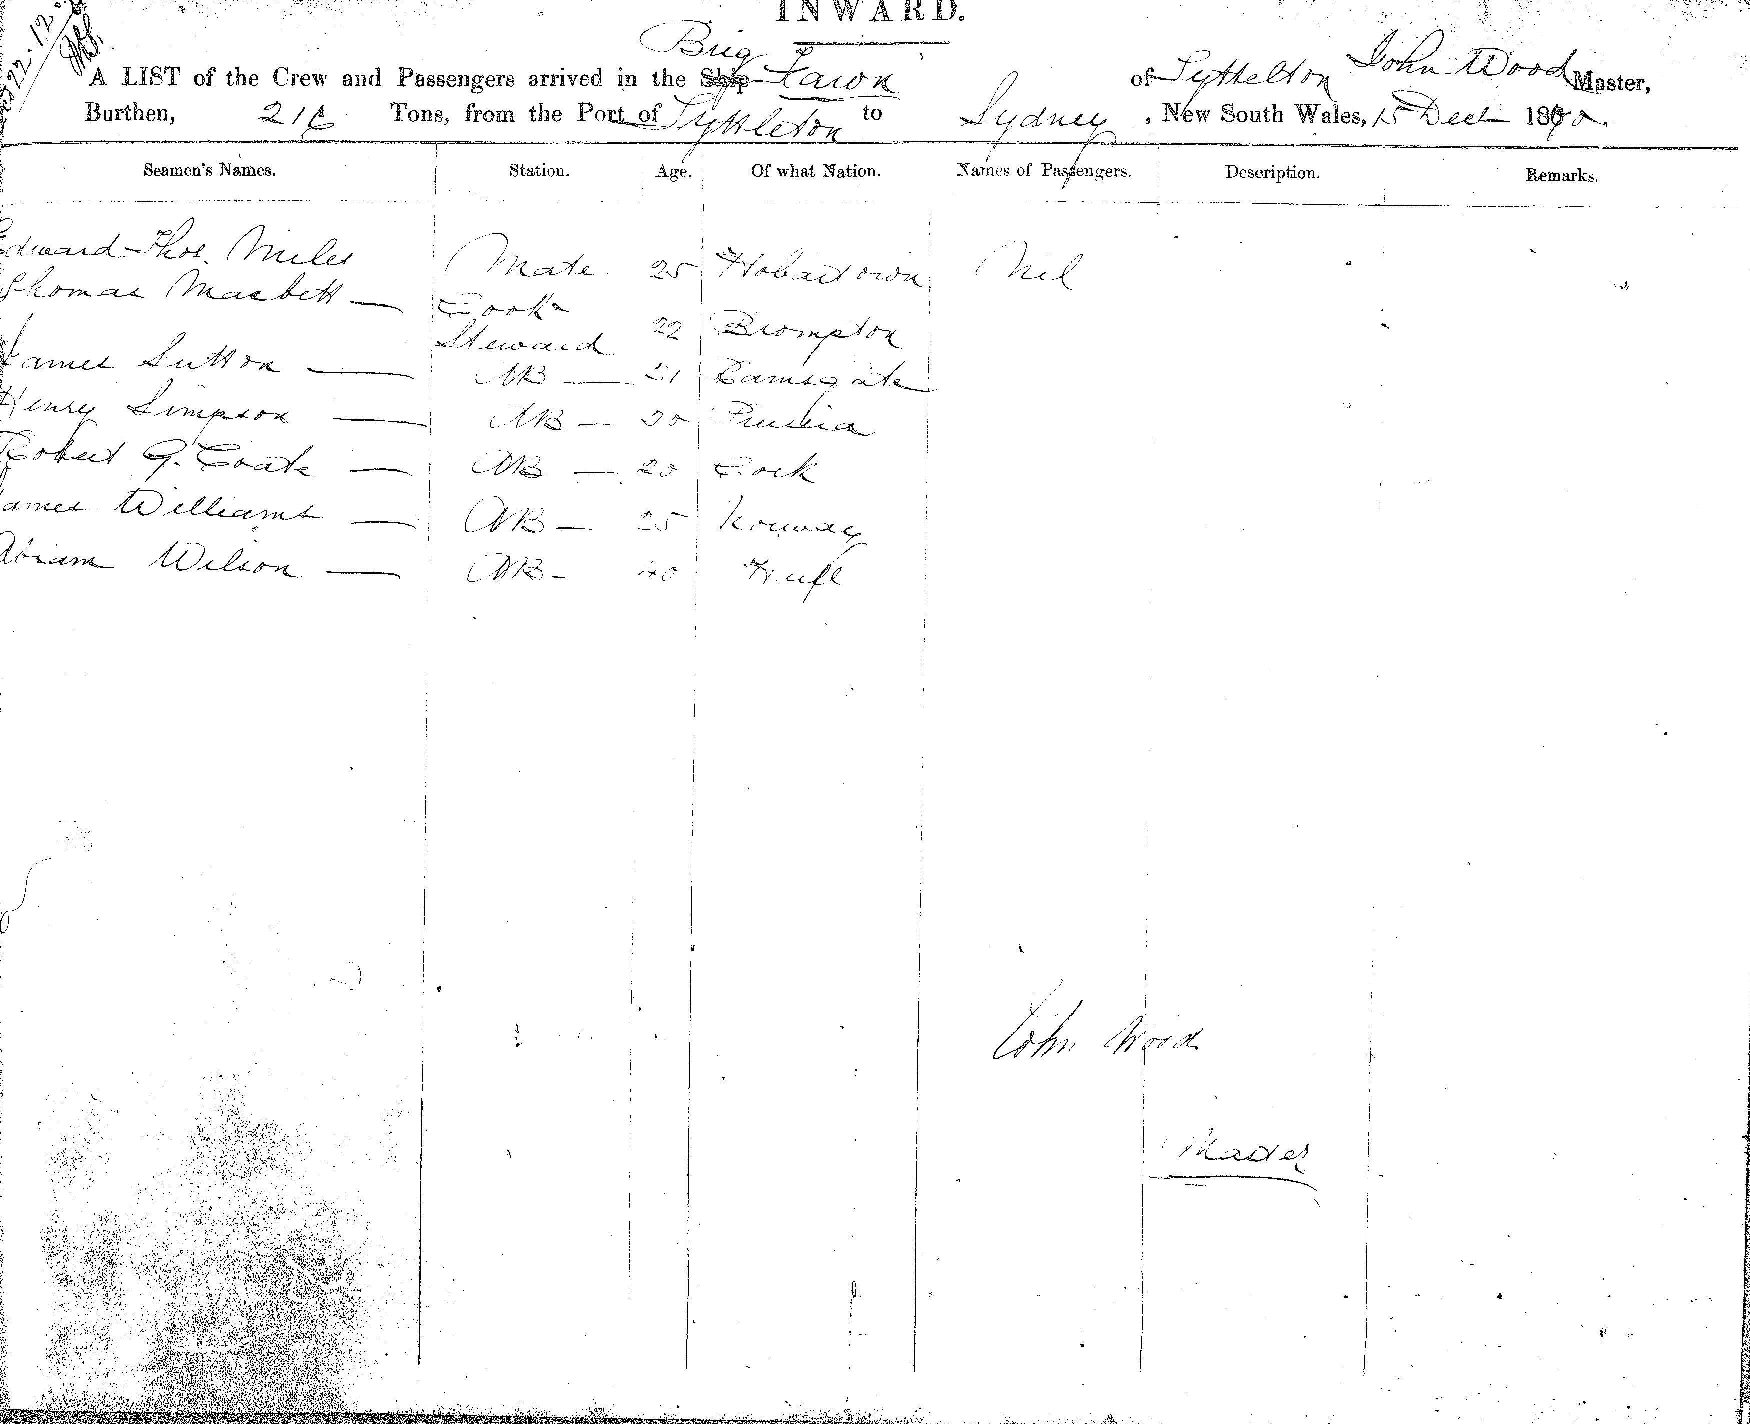 INWARD.
22-12
Brig
A LIST of the Crew and Passengers arrived in the Ship Fawn of Lyttelton John Wood Master,
Burthen, 216 Tons, from the Port of Lyttleton to Sydney, New South Wales, 15 Dec 1870.
Seamen's Names. Station. Age. Of what Nation. Names of Passengers. Description. Remarks.
Edward Thos. Miles Mate 25 Hobartown Nil
Thomas Macbeth — Cook
Steward 22 Brompton
James Sutton — AB — 21 Ramsgate
Henry Simpson — AB — 20 Prussia
Robert G. Coate — AB — 20 Cork
James Williams — AB — 25 Norway
Abram Wilson — AB - 40 Hull
John Wood
Master